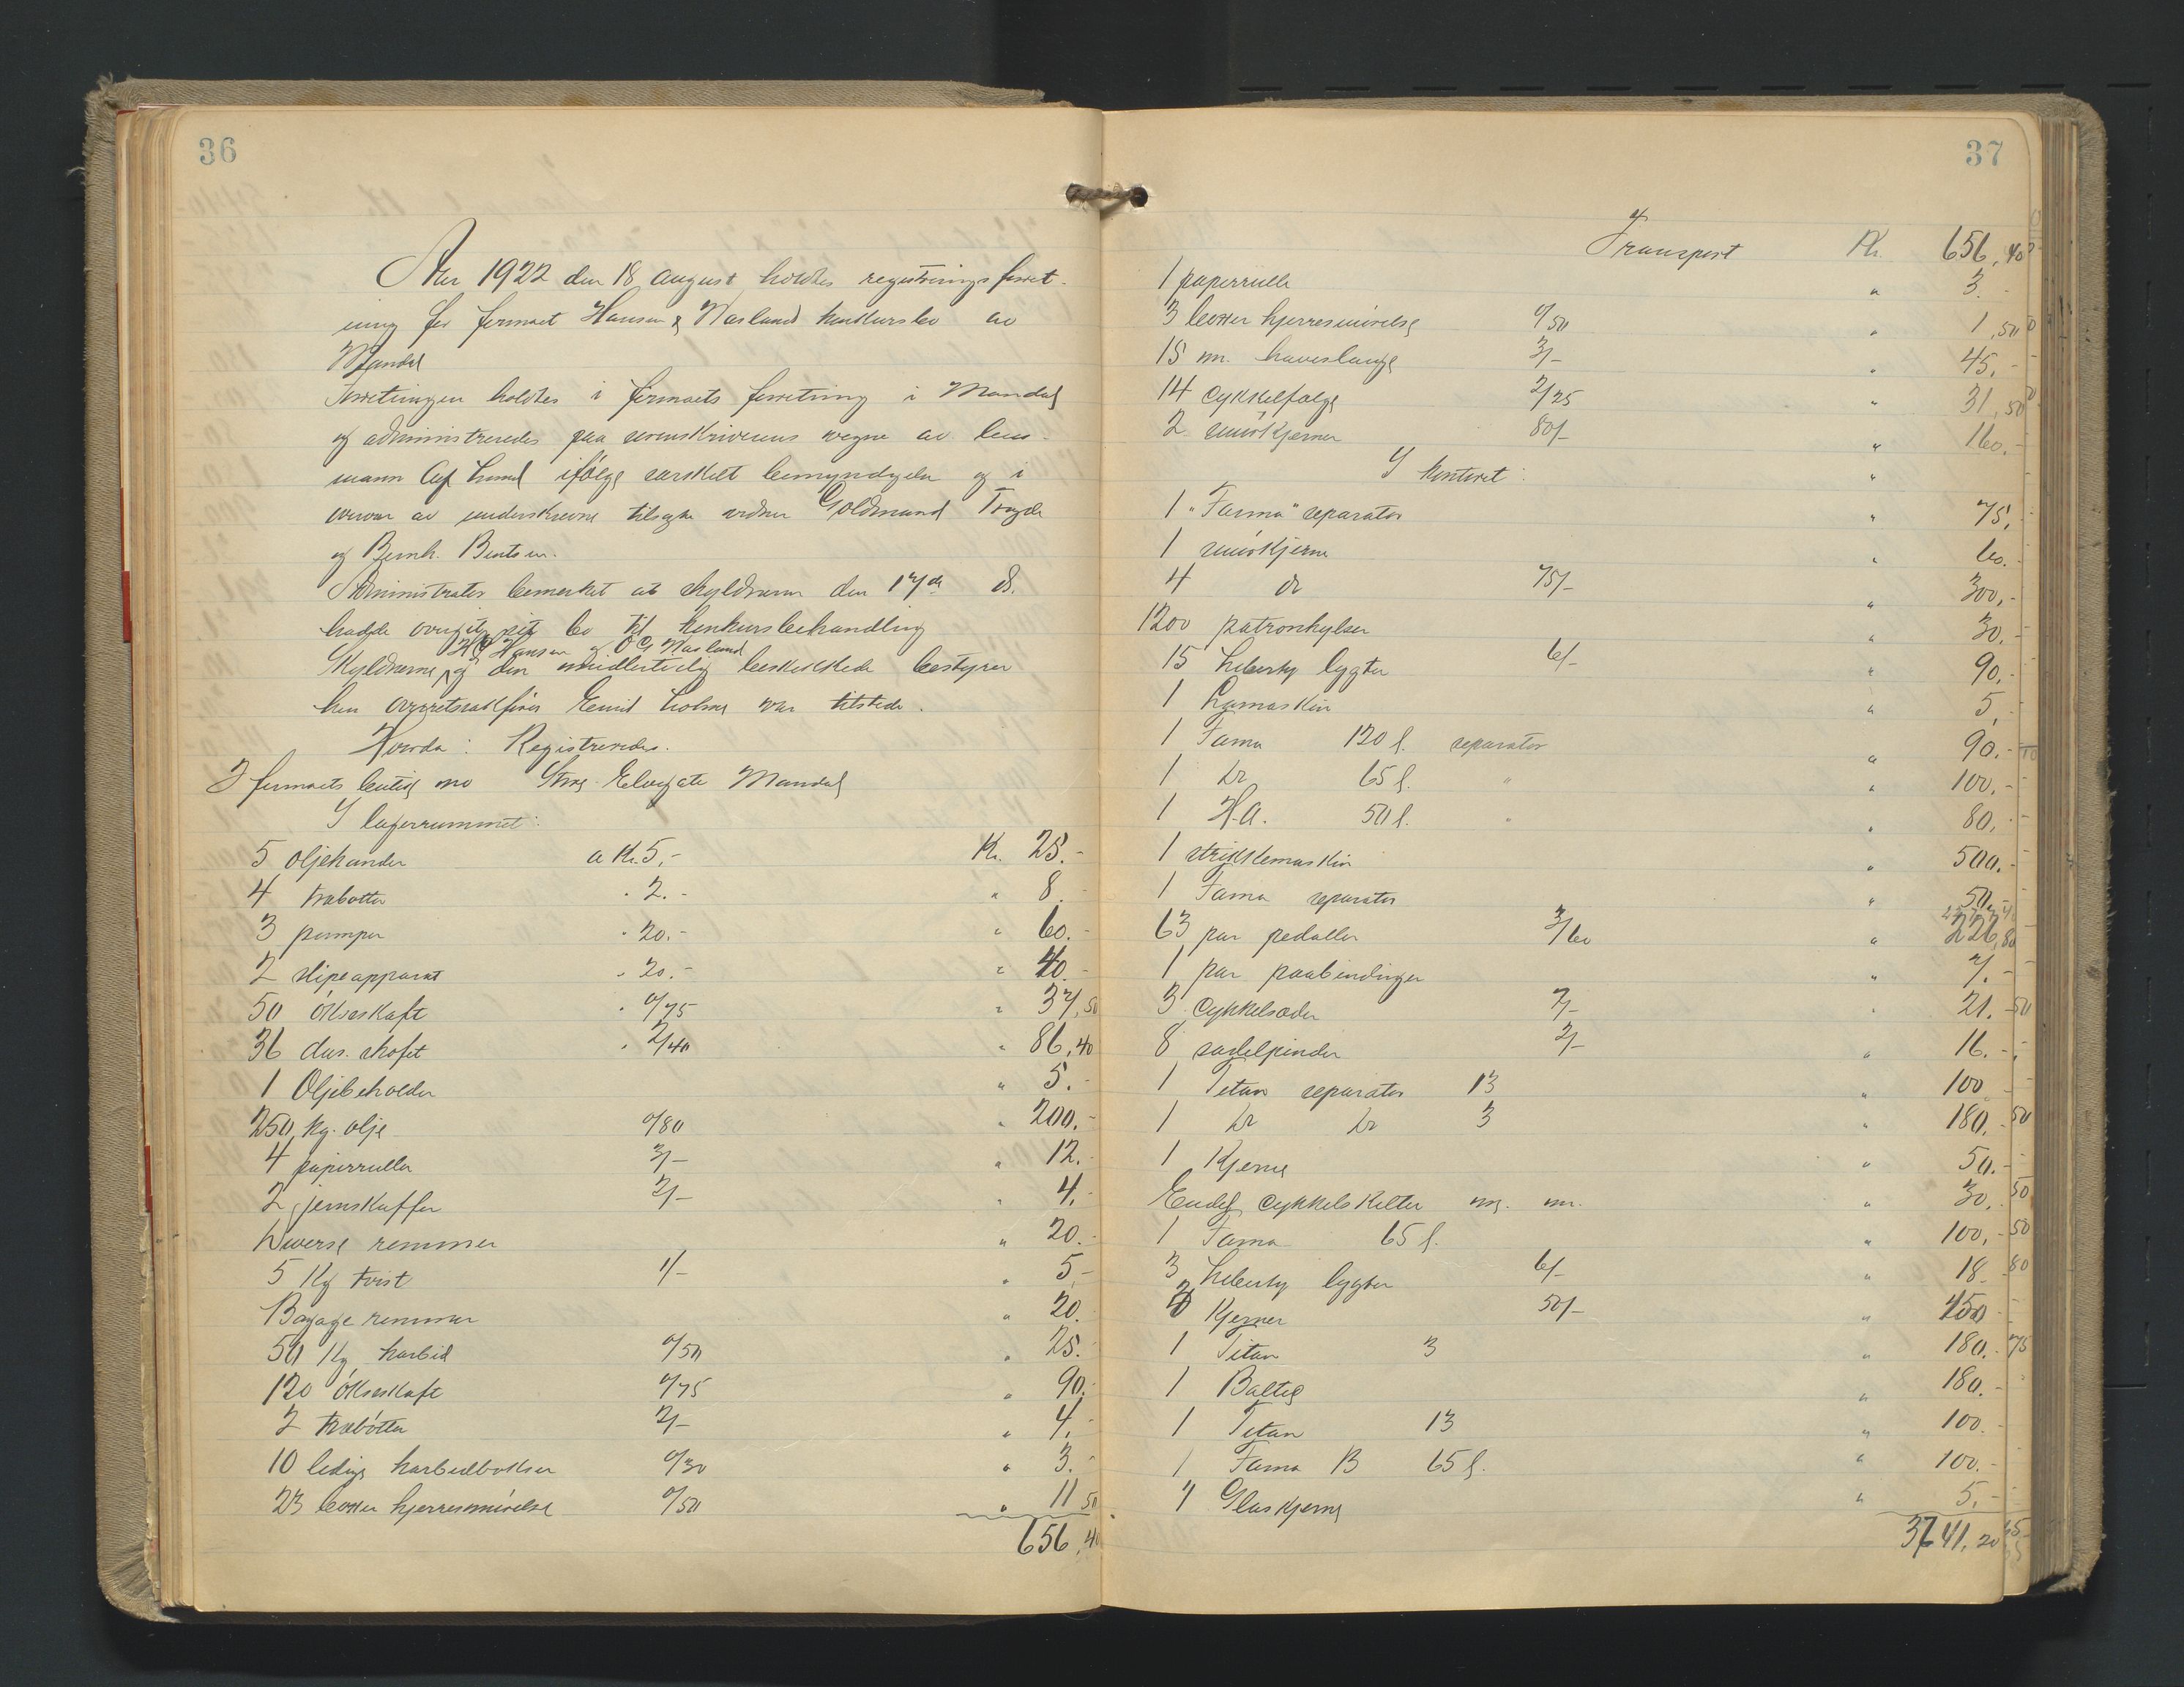 36
Aar 1922 den 18 august holdtes registreringsforret-
ning for firmaet Hansen & Nasland konkursbo av
Mandal
Forretningen holdtes i firmaets forretning i Mandal
og administreredes paa sorenskriverens vegne av lens-
mann Lund ifølge særskilt bemyndigelse og i
overvær av underskrevne tilsagte vidner Goldmund Trygde
og Bernh. Bentsen.
Administrator bemerket at skyldnerne den 17de ds.
hadde overgit sit bo til konkursbehandling
H Hansen & O G Nasland
Skyldnerne og den midlertidig beskikkede bestyrer
herr overretssakfører Emil Holme var tilstede.
Hvorda: Registreredes.
I firmaets butik no Store Elvegate Mandal
I lagerrummet:
5 oljekander a Kr. 5,- Kr. 25.-
4 træbøtter " 2.- " 8.-
3 pumper " 20.- " 60.-
2 slipeapparat " 20.- " 40.-
50 økseskaft " 0/75 " 37,50
36 dus. skofet " 2/40 " 86,40
1 Oljebeholder " 5.-
250 kg. olje 0/80 " 200.-
4 papirruller 3/- " 12.-
2 jernskuffer 2/- " 4.-
Diverse remmer " 20.-
5 Kg tvist 1/- " 5,-
Bagage remmer " 20.
50 Kg karbid 0/50 " 25.
120 økseskaft 0/75 " 90.-
2 træbøtter 2/- " 4,-
10 ledige karbidbokser 0/30 " 3.-
23 bokser kjerresmørelse 0/50 " 11 50
656,40
37
Transport Kr. 656,40
1 papirrulle " 3.-
3 bokser kjerresmørelse 0/50 " 1,50
15 m. haveslange 3/- " 45.-
14 cykkelfælge 2/25 " 31,50
2 smørkjerner 80/- " 160.-
I kontoret: "
1 "Farma" separator " 75,-
1 smørkjerne " 60.-
4 do 75/- " 300,-
1200 patronhylser " 30.-
15 Liberty lygter 6/- " 90,-
1 Symaskin " 5,-
1 Fama 120 l. separator " 90.-
1 do 65 l. " " 100.-
1 H.A. 50 l. " " 80.-
1 strikkemaskin " 500.-
1 Fama separator " 50.-
63 par pedaller 3/60 " 226,80
1 par paabindinger " 7.-
3 cykkelsæder 7/- " 21.-
8 sadelpinder 2/- " 16.-
1 Titan separator 13 " 100
1 do do 3 " 180.
1 Kjerne " 50.-
Endel cykkelskilter m. m. " 30.
1 Fama 65 l. " 100,-
3 Liberty lygter 6/- " 18
Kjerner 50/- " 150
1 Titan 3 " 180.
1 Baltic " 180.-
1 Titan 13 " 100.
1 Fama B 65 l. " 100.-
1 Glaskjerne " 5.-
3741,20